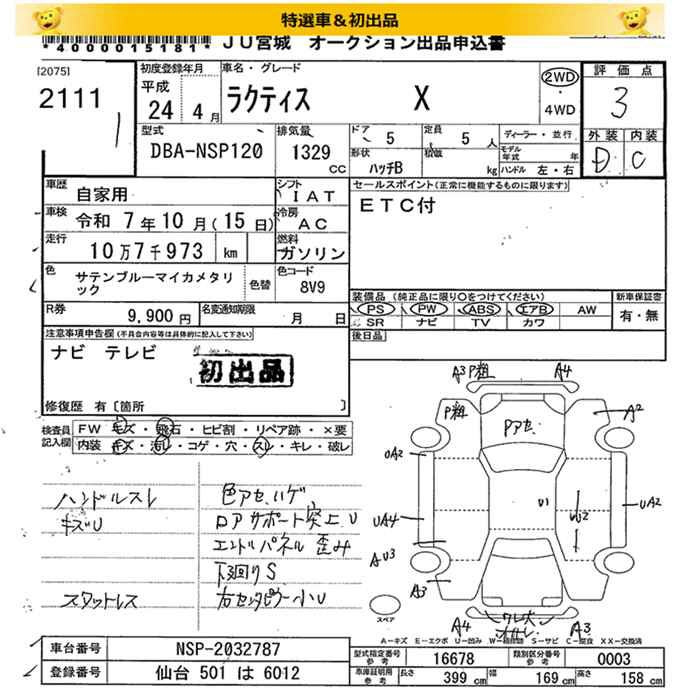 特選車＆初出品
*4000015181*
JU宮城 オークション出品申込書
[2075]
2111
初度登録年月
平成
24 4月
車名・グレード
ラクティス X
2WD
・
4WD
評価点
3
外装 内装
D C
型式
DBA-NSP120
排気量
1329
CC
ドア 5
定員 5 人
形状 ハッチB
積載 kg
ディーラー・並行
モデル年式 年
ハンドル 左・右
車歴 自家用
シフト IAT
車検 令和 7年 10月 (15日)
冷房 AC
走行 10万7千973 km
燃料 ガソリン
色 サテンブルーマイカメタリック
色替
色コード 8V9
R券 9,900円
名変通知期限 月 日
セールスポイント(正常に機能するものに限ります)
ETC付
装備品 (純正品に限り○をつけてください)
PS PW ABS エアB AW
SR ナビ TV カワ
新車保証書
有・無
後日品
注意事項申告欄(不具合内容等は具体的に記入して下さい)
ナビ テレビ
初出品
修復歴 有〔箇所 〕
検査員記入欄
FW キズ・飛石・ヒビ割・リペア跡・×要
内装 キズ・汚レ・コゲ・穴・スレ・キレ・破レ
ハンドルスレ
キズU
スタットレス
色アセ、ハゲ、
ロアサポート突上U
エンドパネル歪み
下廻りS
右センタピラー小U
A3 P粗 A4
P粗
A2
Pアセ
UA2
U1
UA2
UA4
AU3
A3
A4
A3
スペア
A−キズ E−エクボ U−凹み W−補修跡 S−サビ C−腐食 XX−交換済
車台番号 NSP-2032787
登録番号 仙台 501 は 6012
型式指定番号
参考
16678
類別区分番号
参考
0003
車庫証明用
参考
長さ 399 cm
幅 169 cm
高さ 158 cm